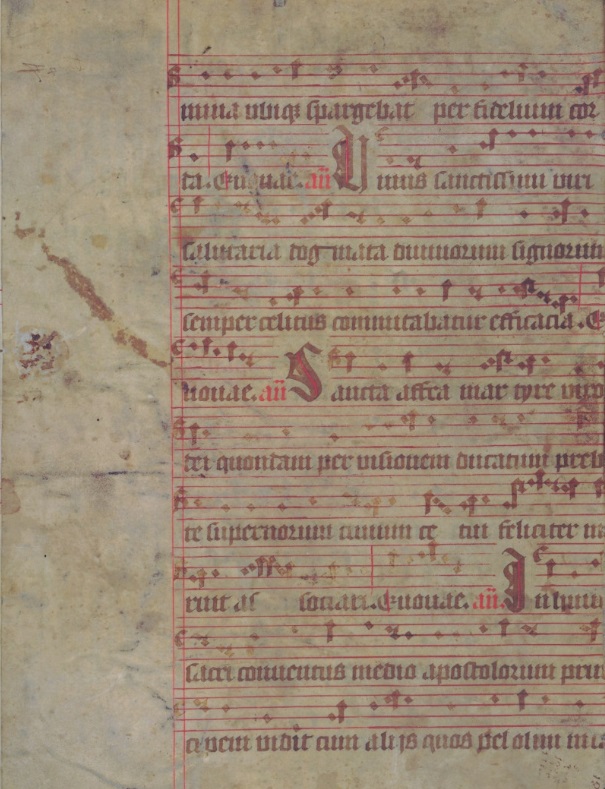 mina ubiq; spargebat per fidelium cor
ta. Euouae. añ Unius sanctissimi viri
salutaria dogmata divinorum signorum
semper celitus commutabatur efficacia. E
uouae. añ Sancta affra mar tyre viro
dei quondam per visionem ducatum preb
te supernorum civium ce tui feliciter
ruit as sociari. Euouae. añ. In
sacri conventus medio apostolorum prin
cipem vidit cum alijs quos